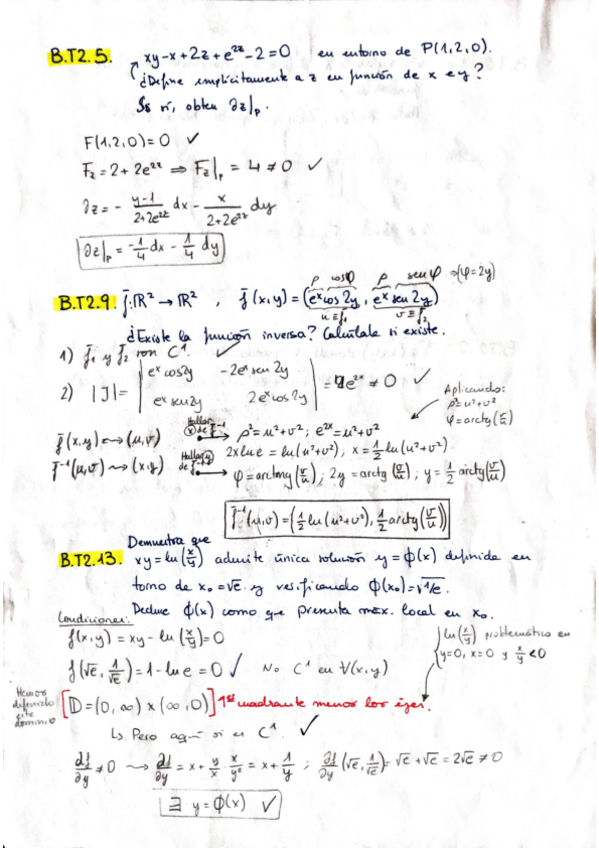 B.T2.5. xy-x+2z+e^{2z}-2=0 en entorno de P(1,2,0).
¿Define implícitamente a z en función de x e y?
Si sí, obten ∂z|p.
F(1,2,0)=0 ✓
Fz = 2+2e^{2z} ⇒ Fz|p = 4 ≠ 0 ✓
∂z = - (y-1)/(2+2e^{2z}) dx - x/(2+2e^{2z}) dy
∂z|p = -1/4 dx - 1/4 dy
ρ cosφ ρ senφ ⇒(φ=2y)
B.T2.9. f̄:ℝ² → ℝ² , f̄(x,y) = (e^x cos 2y, e^x sen 2y)
u ≡ f₁ v ≡ f₂
¿Existe la función inversa? Calcúlala si existe.
1) f̄₁ y f̄₂ son C¹. ✓
2) |J| = | e^x cos2y -2e^x sen 2y |
| e^x sen2y 2e^x cos2y | = 2e^{2x} ≠ 0 ✓
Aplicando:
ρ²=u²+v²
φ=arctg(v/u)
Hallar x de f̄⁻¹ ρ²=u²+v²; e^{2x}=u²+v²
f̄(x,y) ↔ (u,v) 2x ln e = ln(u²+v²), x = 1/2 ln(u²+v²)
f̄⁻¹(u,v) → (x,y) Hallar y de f̄⁻¹ φ = arctg(v/u); 2y = arctg(v/u); y = 1/2 arctg(v/u)
f̄⁻¹(u,v) = (1/2 ln(u²+v²), 1/2 arctg(v/u))
Demuestra que
B.T2.13. xy = ln(x/y) admite única solución y = ϕ(x) definida en
torno de x₀=√e y verificando ϕ(x₀)=√1/e.
Deduce ϕ(x) como que presenta máx. local en x₀.
Condiciones:
f(x,y) = xy - ln(x/y) = 0
ln(x/y) problemático en
y=0, x=0 y x/y<0
f(√e, 1/√e) = 1 - ln e = 0 ✓ No C¹ en ∀(x,y)
Hemos definido este dominio
[D = (0,∞) x (∞,0)] 1er cuadrante menos los ejes.
↳ Pero aquí sí es C¹. ✓
∂f/∂y ≠ 0 → ∂f/∂y = x + y/x · x/y² = x + 1/y ; ∂f/∂y (√e, 1/√e) = √e + √e = 2√e ≠ 0
∃ y = ϕ(x) ✓